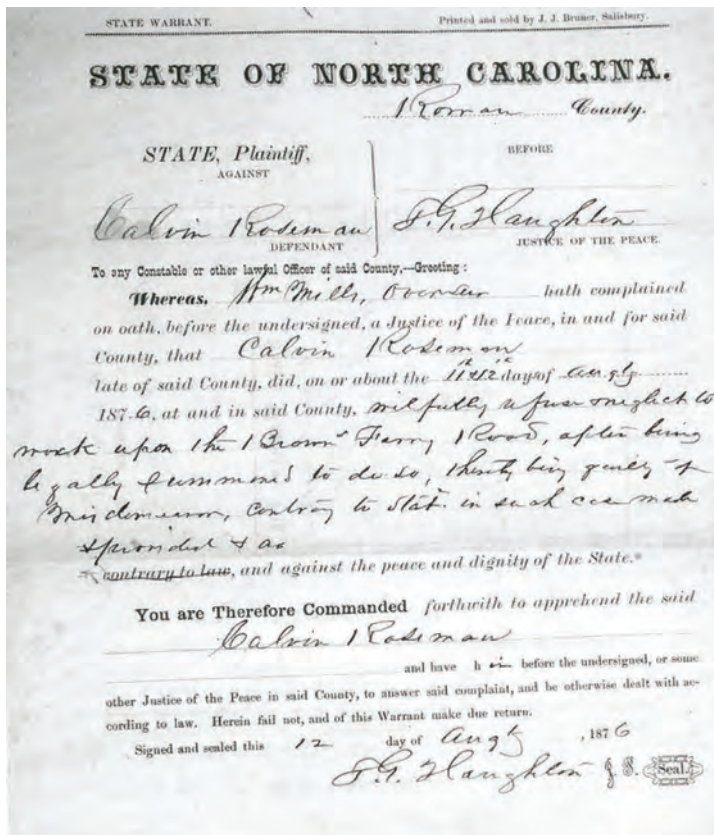 STATE WARRANT. Printed and sold by J. J. Bruner, Salisbury.
STATE OF NORTH CAROLINA.
Rowan County.
STATE, Plaintiff, BEFORE
AGAINST
Calvin Roseman T. G. Haughton
DEFENDANT JUSTICE OF THE PEACE.
To any Constable or other lawful Officer of said County,—Greeting:
Whereas, Wm Mills, Overseer hath complained
on oath, before the undersigned, a Justice of the Peace, in and for said
County, that Calvin Roseman
late of said County, did, on or about the 11 & 12 days of Augt
1876, at and in said County, wilfully refuse & neglect to
work upon the Brown Ferry Road, after being
legally summoned to do so, thereby being guilty of
Misdemeanor, contrary to Stat. in such case made
& provided & as
contrary to law, and against the peace and dignity of the State.*
You are Therefore Commanded forthwith to apprehend the said
Calvin Roseman
and have him before the undersigned, or some
other Justice of the Peace in said County, to answer said complaint, and be otherwise dealt with ac-
cording to law. Herein fail not, and of this Warrant make due return.
Signed and sealed this 12 day of Augt, 1876
T. G. Haughton J. P. Seal.